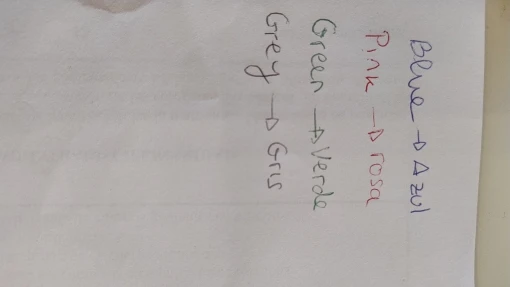 Blue → Azul
Pink → rosa
Green → Verde
Grey → Gris